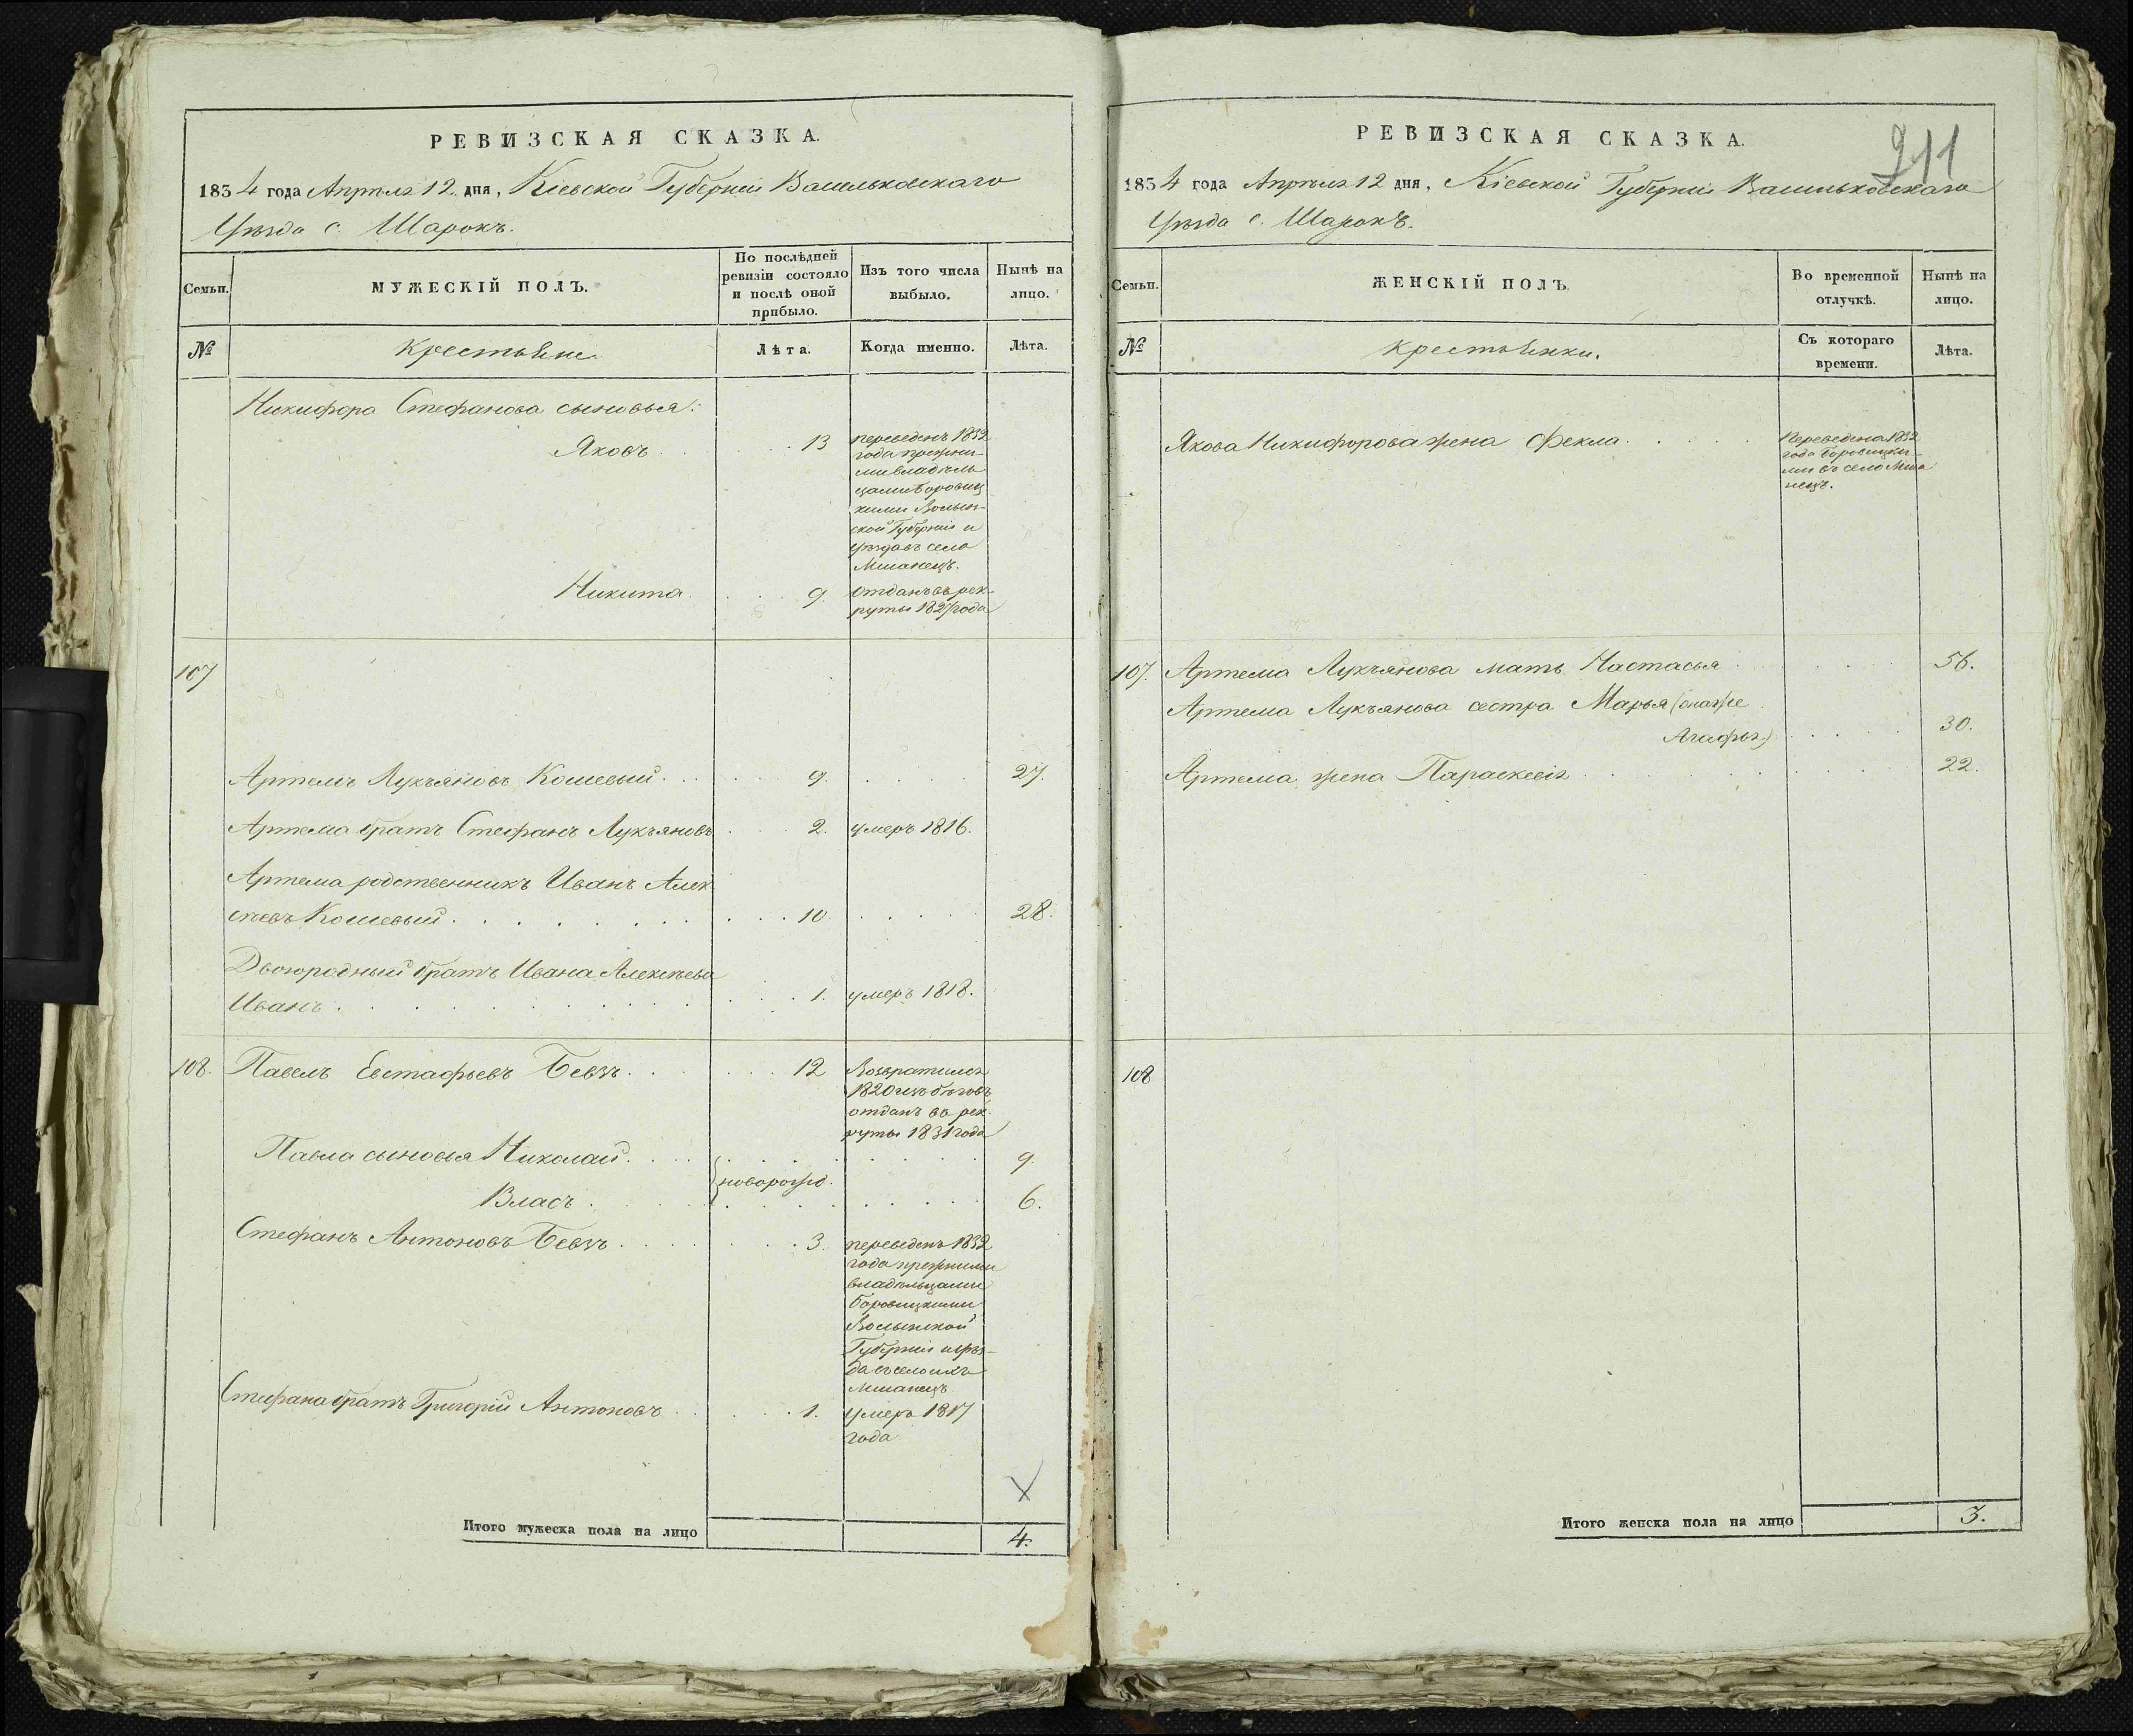 РЕВИЗСКАЯ СКАЗКА.
1834 года Апрѣля 12 дня, Кіевской Губерніи Васильковскаго
Уѣзда с. Шарокъ.
Семьи.
МУЖЕСКІЙ ПОЛЪ.
По послѣдней
ревизіи состояло
и послѣ оной
прибыло.
Изъ того числа
выбыло.
Нынѣ на
лицо.
№
Крестьяне.
Лѣта.
Когда именно.
Лѣта.
Никифора Стефанова сыновья:
Яковъ 13
переведенъ 1832
года прежни-
ми владѣль
цами Боровиц
кими Волын-
ской Губерніи и
уѣзда въ село
Мшанецъ.
Никита 9
отданъ въ рек-
руты 1827 года
107
Артемъ Лукъяновъ Кошевый 9. 27.
Артема братъ Стефанъ Лукъяновъ 2. умеръ 1816.
Артема родственникъ Иванъ Алек
сѣевъ Кошевый 10. 28.
Двоюродный братъ Ивана Алексѣева
Иванъ 1. умеръ 1818.
108. Павелъ Евстафьевъ Бевзъ 12
Возвратился
1820 изъ бѣговъ
отданъ въ рек-
руты 1831 года
Павла сыновья Николай 9
новорожд.
Власъ 6.
Стефанъ Антоновъ Бевзъ 3.
переведенъ 1832
года прежними
владѣльцами
Боровицкими
Волынской
Губерніи и уѣз-
да въ село ихъ
Мшанецъ.
Стефана братъ Григорій Антоновъ 1.
умеръ 1817
года
Итого мужеска пола на лицо 4.
211
РЕВИЗСКАЯ СКАЗКА.
1834 года Апрѣля 12 дня, Кіевской Губерніи Васильковскаго
Уѣзда с. Шарокъ.
Семьи.
ЖЕНСКІЙ ПОЛЪ.
Во временной
отлучкѣ.
Нынѣ на
лицо.
№
Крестьянки.
Съ котораго
времени.
Лѣта.
Якова Никифорова жена Фекла
Переведена 1832
года Боровицки-
ми въ село Мша
нецъ.
107. Артема Лукъянова мать Настасья 56.
Артема Лукъянова сестра Марья (она же
Агафья) 30.
Артема жена Параскевія 22.
108
Итого женска пола на лицо 3.